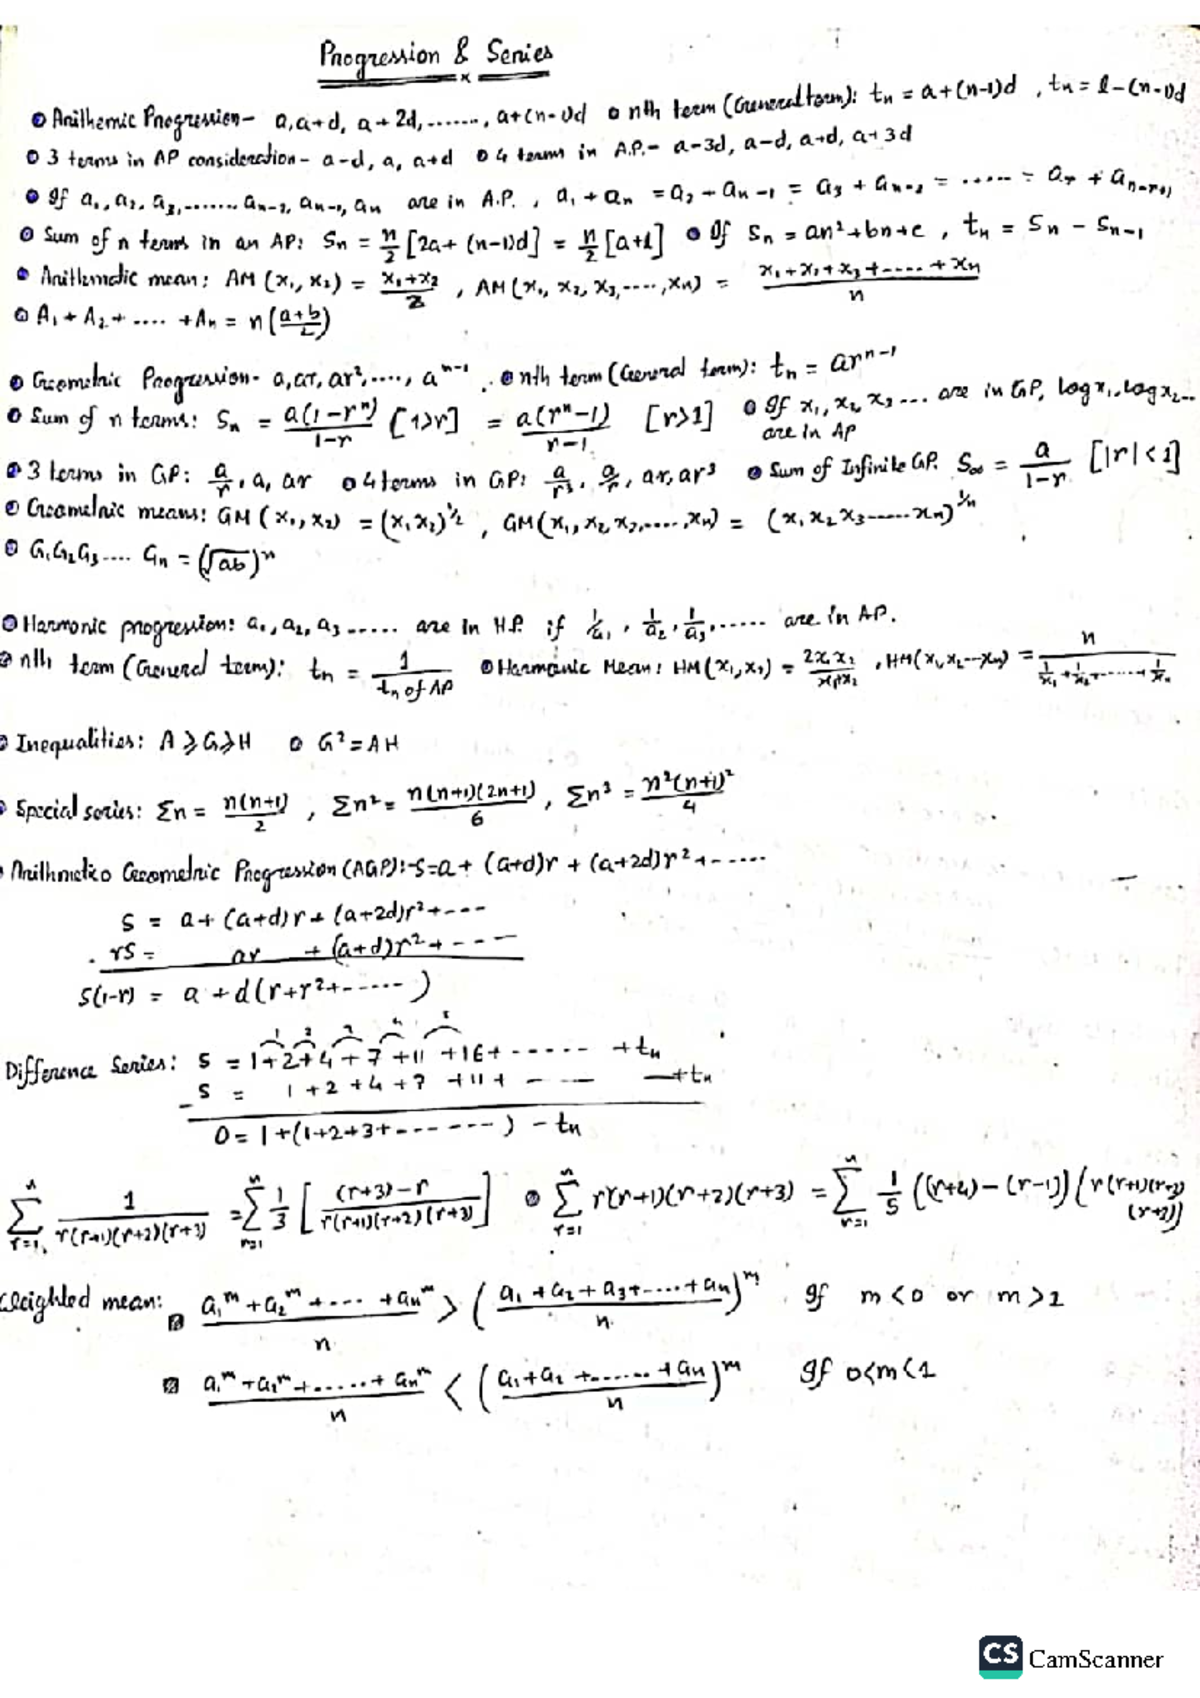 Progression & Series
Arithemic Progression- a, a+d, a+2d, ......., a+(n-1)d nth term (General term): tₙ = a+(n-1)d , tₙ = l-(n-1)d
3 terms in AP consideration- a-d, a, a+d 4 terms in A.P.- a-3d, a-d, a+d, a+3d
If a₁, a₂, a₃, ....... aₙ₋₂, aₙ₋₁, aₙ are in A.P. , a₁ + aₙ = a₂ + aₙ₋₁ = a₃ + aₙ₋₂ = ..... = aᵣ + aₙ₋ᵣ₊₁
Sum of n terms in an AP: Sₙ = n/2 [2a+ (n-1)d] = n/2 [a+l] If Sₙ = an²+bn+c , tₙ = Sₙ - Sₙ₋₁
Arithmetic mean: AM (x₁, x₂) = (x₁+x₂)/2 , AM (x₁, x₂, x₃, ...., xₙ) = (x₁+x₂+x₃+....+xₙ)/n
A₁ + A₂ + .... + Aₙ = n((a+b)/2)
Geometric Progression- a, ar, ar², ...., aⁿ⁻¹ nth term (General term): tₙ = arⁿ⁻¹
Sum of n terms: Sₙ = a(1-rⁿ)/(1-r) [1>r] = a(rⁿ-1)/(r-1) [r>1] If x₁, x₂, x₃ ... are in GP, log x₁, log x₂...
are in AP
3 terms in GP: a/r, a, ar 4 terms in GP: a/r³, a/r, ar, ar³ Sum of Infinite GP. S∞ = a/(1-r) [|r|<1]
Geometric means: GM (x₁, x₂) = (x₁x₂)^½ , GM(x₁, x₂, x₃, ...., xₙ) = (x₁x₂x₃......xₙ)^(1/n)
G₁G₂G₃.... Gₙ = (√ab)ⁿ
Harmonic progression: a₁, a₂, a₃ ..... are in H.P. if 1/a₁, 1/a₂, 1/a₃, ...... are in AP.
nth term (General term): tₙ = 1/(tₙ of AP) Harmonic Mean: HM(x₁, x₂) = 2x₁x₂/(x₁+x₂) , HM(x₁, x₂...xₙ) = n/(1/x₁ + 1/x₂ + ...... + 1/xₙ)
Inequalities: A ≥ G ≥ H G² = AH
Special series: Σn = n(n+1)/2 , Σn² = n(n+1)(2n+1)/6 , Σn³ = n²(n+1)²/4
Arithmetico Geometric Progression (AGP):- S=a+ (a+d)r + (a+2d)r²+.....
S = a+ (a+d)r+ (a+2d)r²+...
rS = ar + (a+d)r²+ - - -
S(1-r) = a + d(r+r²+......)
1 2 3 4 5
Difference Series: S = 1+2+4+7+11+16+...... + tₙ
- S = 1+2+4+7+11+ ...... + tₙ
0 = 1+(1+2+3+.......) - tₙ
ⁿΣᵣ₌₁ 1/(r(r+1)(r+2)(r+3)) = ⁿΣᵣ₌₁ 1/3 [((r+3)-r)/(r(r+1)(r+2)(r+3))] ⁿΣᵣ₌₁ r(r+1)(r+2)(r+3) = ⁿΣᵣ₌₁ 1/5 ((r+4)-(r-1)) (r(r+1)(r+2)
(r+3))
Weighted mean: (a₁ᵐ + a₂ᵐ + ... + aₙᵐ)/n > ((a₁+a₂+a₃+....+aₙ)/n)ᵐ If m<0 or m>1
(a₁ᵐ + a₂ᵐ + ..... + aₙᵐ)/n < ((a₁+a₂+......+aₙ)/n)ᵐ If 0<m<1
CS CamScanner